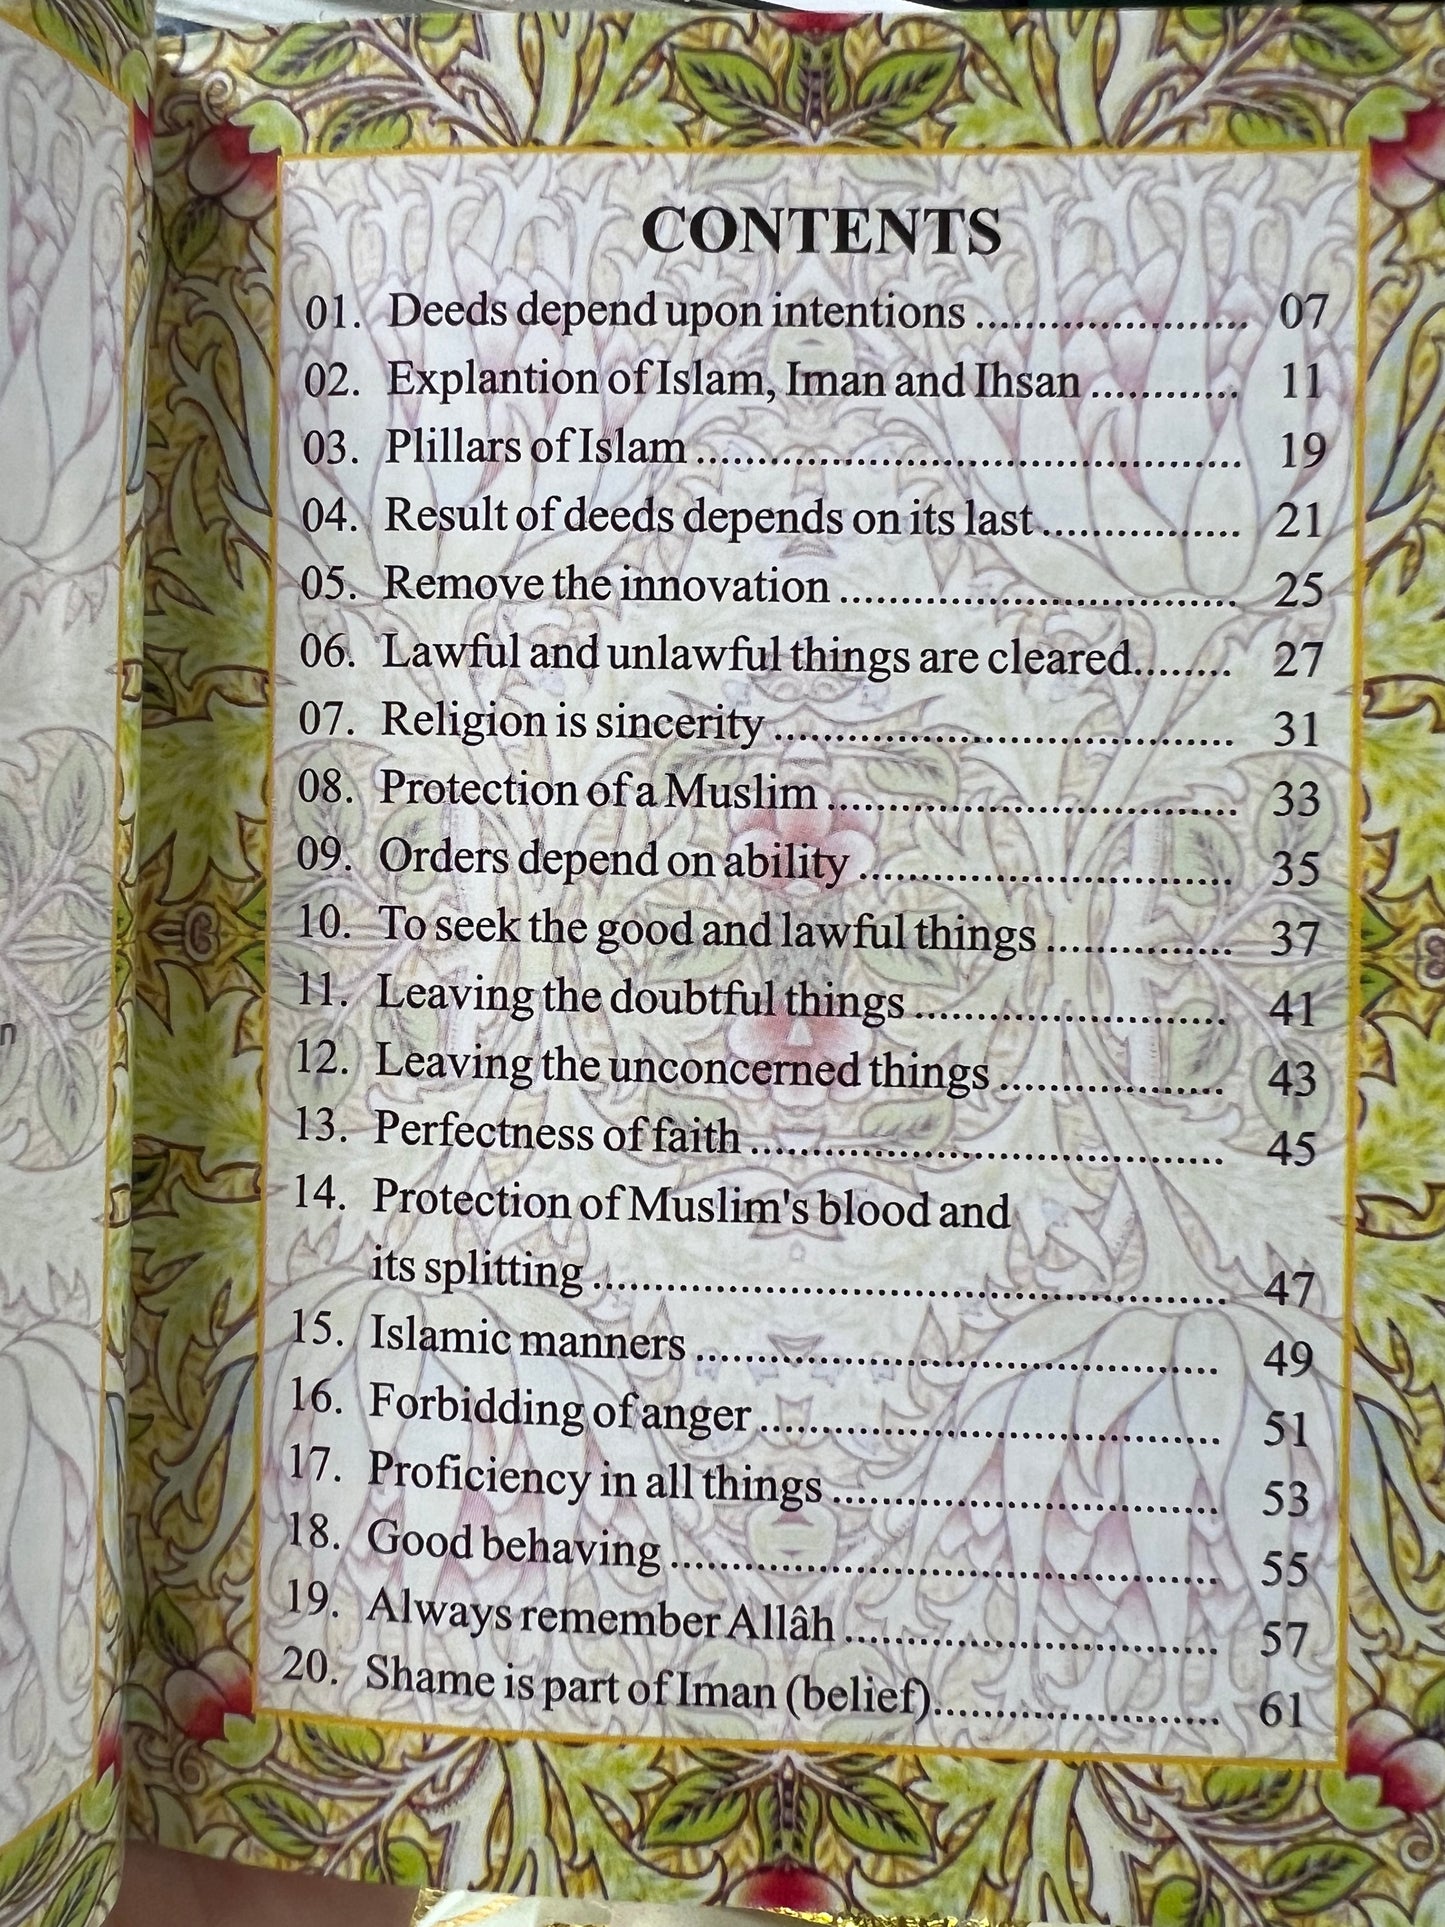 CONTENTS
01. Deeds depend upon intentions ...................... 07
02. Explantion of Islam, Iman and Ihsan ............ 11
03. Plillars of Islam ............................................ 19
04. Result of deeds depends on its last ................ 21
05. Remove the innovation ................................ 25
06. Lawful and unlawful things are cleared........ 27
07. Religion is sincerity ..................................... 31
08. Protection of a Muslim ................................. 33
09. Orders depend on ability .............................. 35
10. To seek the good and lawful things ............... 37
11. Leaving the doubtful things ......................... 41
12. Leaving the unconcerned things .................. 43
13. Perfectness of faith ...................................... 45
14. Protection of Muslim's blood and
its splitting ................................................... 47
15. Islamic manners .......................................... 49
16. Forbidding of anger ..................................... 51
17. Proficiency in all things ............................... 53
18. Good behaving ............................................ 55
19. Always remember Allâh .............................. 57
20. Shame is part of Iman (belief)....................... 61
n